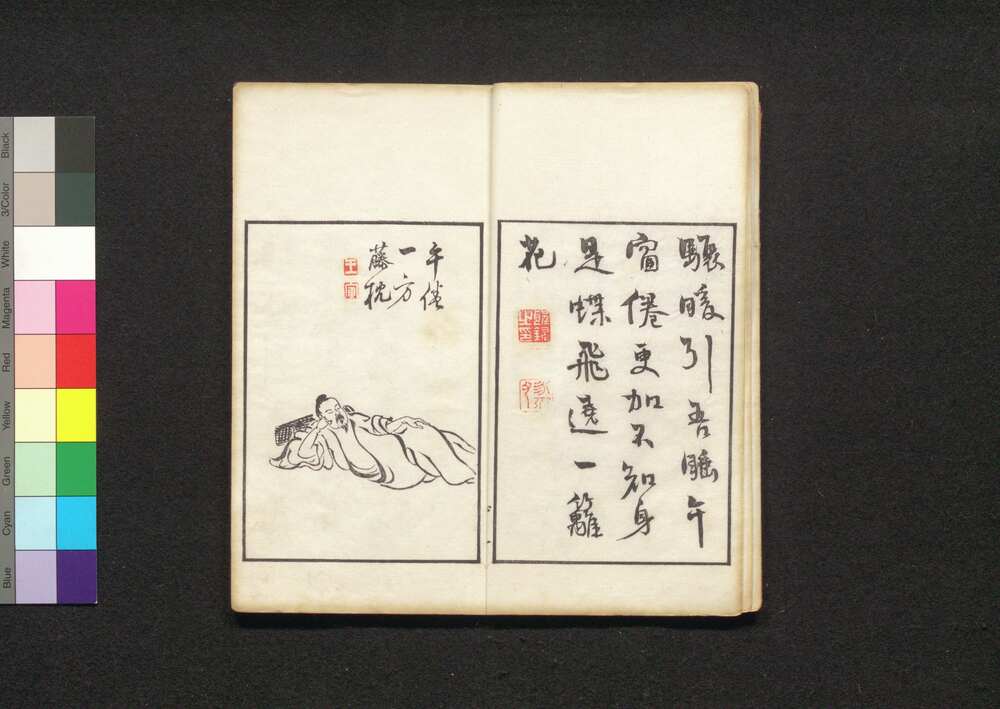 驟暖引吾睡午
窗倦更加不知身
是蝶飛遶一籬
花
午倦
一方
藤枕
王
寅
Black
3/Color
White
Magenta
Red
Yellow
Green
Cyan
Blue